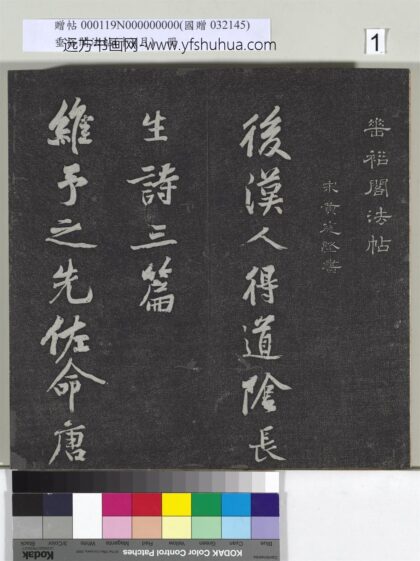 贈帖 000119N000000000(國贈 032145)
远方书画网- www.yfshuhua.com
1
垂裕閣法帖
宋黃庭堅書
後漢人得道陰長
生詩三篇
維予之先佐命唐
Black
3/Color
White
Magenta
Red
Yellow
Green
Cyan
Blue
KODAK Color Control Patches